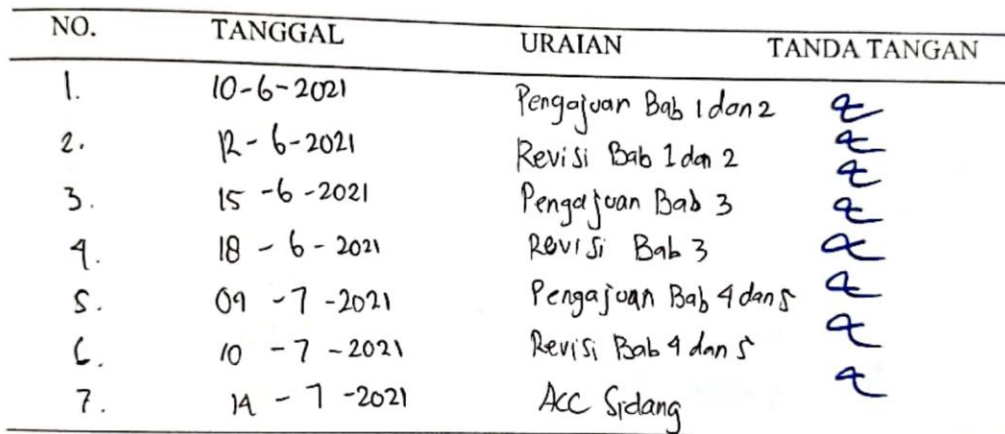 NO. TANGGAL URAIAN TANDA TANGAN
1. 10-6-2021 Pengajuan Bab 1 dan 2
2. 12-6-2021 Revisi Bab 1 dan 2
3. 15-6-2021 Pengajuan Bab 3
4. 18-6-2021 Revisi Bab 3
5. 09-7-2021 Pengajuan Bab 4 dan 5
6. 10-7-2021 Revisi Bab 4 dan 5
7. 14-7-2021 Acc Sidang